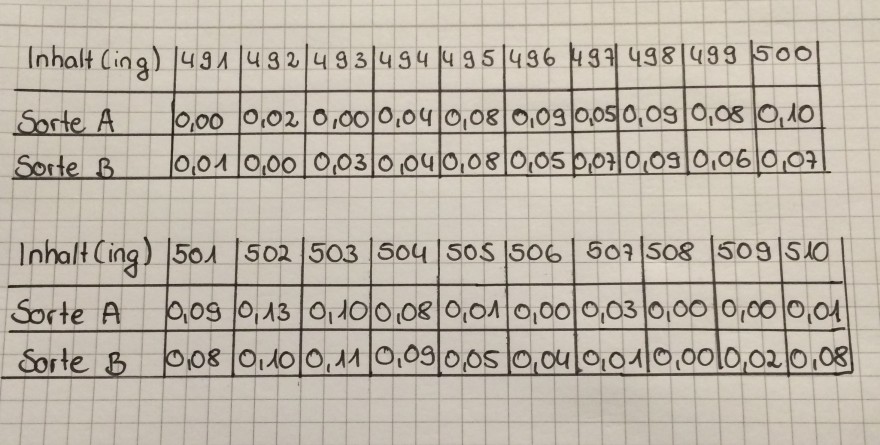 Inhalt (in g) 491 492 493 494 495 496 497 498 499 500
Sorte A 0,00 0,02 0,00 0,04 0,08 0,09 0,05 0,09 0,08 0,10
Sorte B 0,01 0,00 0,03 0,04 0,08 0,05 0,07 0,09 0,06 0,07
Inhalt (in g) 501 502 503 504 505 506 507 508 509 510
Sorte A 0,09 0,13 0,10 0,08 0,01 0,00 0,03 0,00 0,00 0,01
Sorte B 0,08 0,10 0,11 0,09 0,05 0,04 0,01 0,00 0,02 0,08